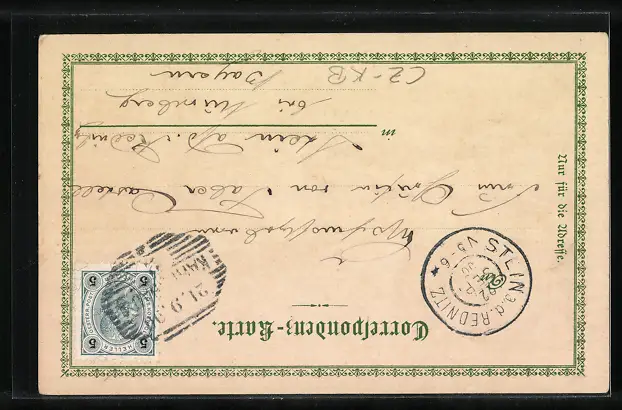 Correspondenz-Karte.
Hochwohlgeboren
Frau Gräfin von Faber Castell
in Stein a/d. Rednitz
bei Nürnberg
Bayern
Nur für die Adresse.
CZ-KB
STEIN a.d. REDNITZ
V5-6
22
21.9.
KARL
5 5
5 5
HELLER